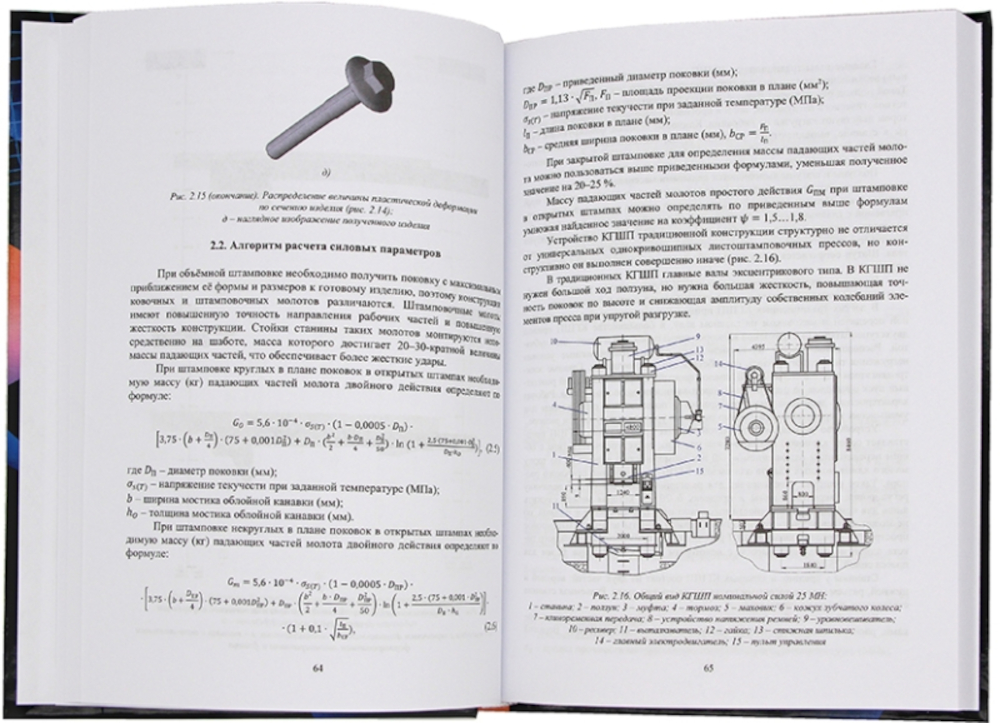 д)
Рис. 2.15 (окончание). Распределение величины пластической деформации
по сечению изделия (рис. 2.14);
д – наглядное изображение полученного изделия
2.2. Алгоритм расчета силовых параметров
При объёмной штамповке необходимо получить поковку с максимальным
приближением её формы и размеров к готовому изделию, поэтому конструкции
ковочных и штамповочных молотов различаются. Штамповочные молоты
имеют повышенную точность направления рабочих частей и повышенную
жесткость конструкции. Стойки станины таких молотов монтируются непо-
средственно на шаботе, масса которого достигает 20–30-кратной величины
массы падающих частей, что обеспечивает более жесткие удары.
При штамповке круглых в плане поковок в открытых штампах необходи-
мую массу (кг) падающих частей молота двойного действия определяют по
формуле:
G₀ = 5,6 · 10⁻⁴ · σ_S(T) · (1 − 0,0005 · D_П) ·
[3,75 · (b + D_П/4) · (75 + 0,001D_П²) + D_П · (b²/2 + b·D_П/4 + D_П²/50) · ln (1 + 2,5·(75+0,001·D_П²)/(D_П·h₀))], (2.5)
где D_П – диаметр поковки (мм);
σ_s(T) – напряжение текучести при заданной температуре (МПа);
b – ширина мостика облойной канавки (мм);
h_O – толщина мостика облойной канавки (мм).
При штамповке некруглых в плане поковок в открытых штампах необхо-
димую массу (кг) падающих частей молота двойного действия определяют по
формуле:
· 5,6 · 10⁻⁴ · σ_S(T) · (1 − 0,0005 · D_ПР) ·
· [3,75 · (b + D_ПР/4) · (75 + 0,001D_ПР²) + D_ПР · (b²/2 + b · D_ПР/4 + D_ПР²/50) · ln (1 + 2,5 · (75 + 0,001 · D_П²)/(D_П · h₀))] ·
· (1 + 0,1 · √(l_П/b_СР)), (2.6)
64
где D_ПР – приведенный диаметр поковки (мм);
D_ПР = 1,13 · √F_П, F_П – площадь проекции поковки в плане (мм²);
σ_s(T) – напряжение текучести при заданной температуре (МПа);
l_П – длина поковки в плане (мм);
b_СР – средняя ширина поковки в плане (мм), b_СР = F_П/l_П.
При закрытой штамповке для определения массы падающих частей моло-
та можно пользоваться выше приведенными формулами, уменьшая полученное
значение на 20–25 %.
Массу падающих частей молотов простого действия G_ПМ при штамповке
в открытых штампах можно определять по приведенным выше формулам
умножая найденное значение на коэффициент ψ = 1,5…1,8.
Устройство КГШП традиционной конструкции структурно не отличается
от универсальных однокривошипных листоштамповочных прессов, но кон-
структивно он выполнен совершенно иначе (рис. 2.16).
В традиционных КГШП главные валы эксцентрикового типа. В КГШП не
нужен большой ход ползуна, но нужна большая жесткость, повышающая точ-
ность поковок по высоте и снижающая амплитуду собственных колебаний эле-
ментов пресса при упругой разгрузке.
10 9 13 12 4 3 6 2 15 1 11
1240
14 8 7 5
4195
1840
Рис. 2.16. Общий вид КГШП номинальной силой 25 МН:
1 – станина; 2 – ползун; 3 – муфта; 4 – тормоз; 5 – маховик; 6 – кожух зубчатого колеса;
7 – клиноременная передача; 8 – устройство натяжения ремней; 9 – уравновешиватель;
10 – ресивер; 11 – выталкиватель; 12 – гайка; 13 – стяжная шпилька;
14 – главный электродвигатель; 15 – пульт управления
65